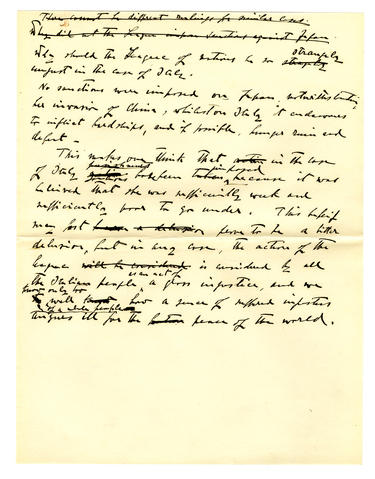 There cannot be different rulings for similar cases.
Why did not the League impose sanctions against Japan.
Why should the League of nations be so strangely
unjust in the case of Italy.
No sanctions were imposed on Japan, notwithstanding
her invasion of China, whilst on Italy it endeavours
to inflict hardships, and if possible, hunger ruin and
defeat.
This makes one think that in the case
of Italy punishment has been imposed because it was
believed that she was sufficiently weak and
sufficiently poor to go under. This belief
may prove to be a bitter
delusion, but in any case, the action of the
League is considered by all
the Italian people an act of gross injustice, and we
know only too
well how a sense of suffered injustice
of a whole people
augurs ill for the future peace of the world.